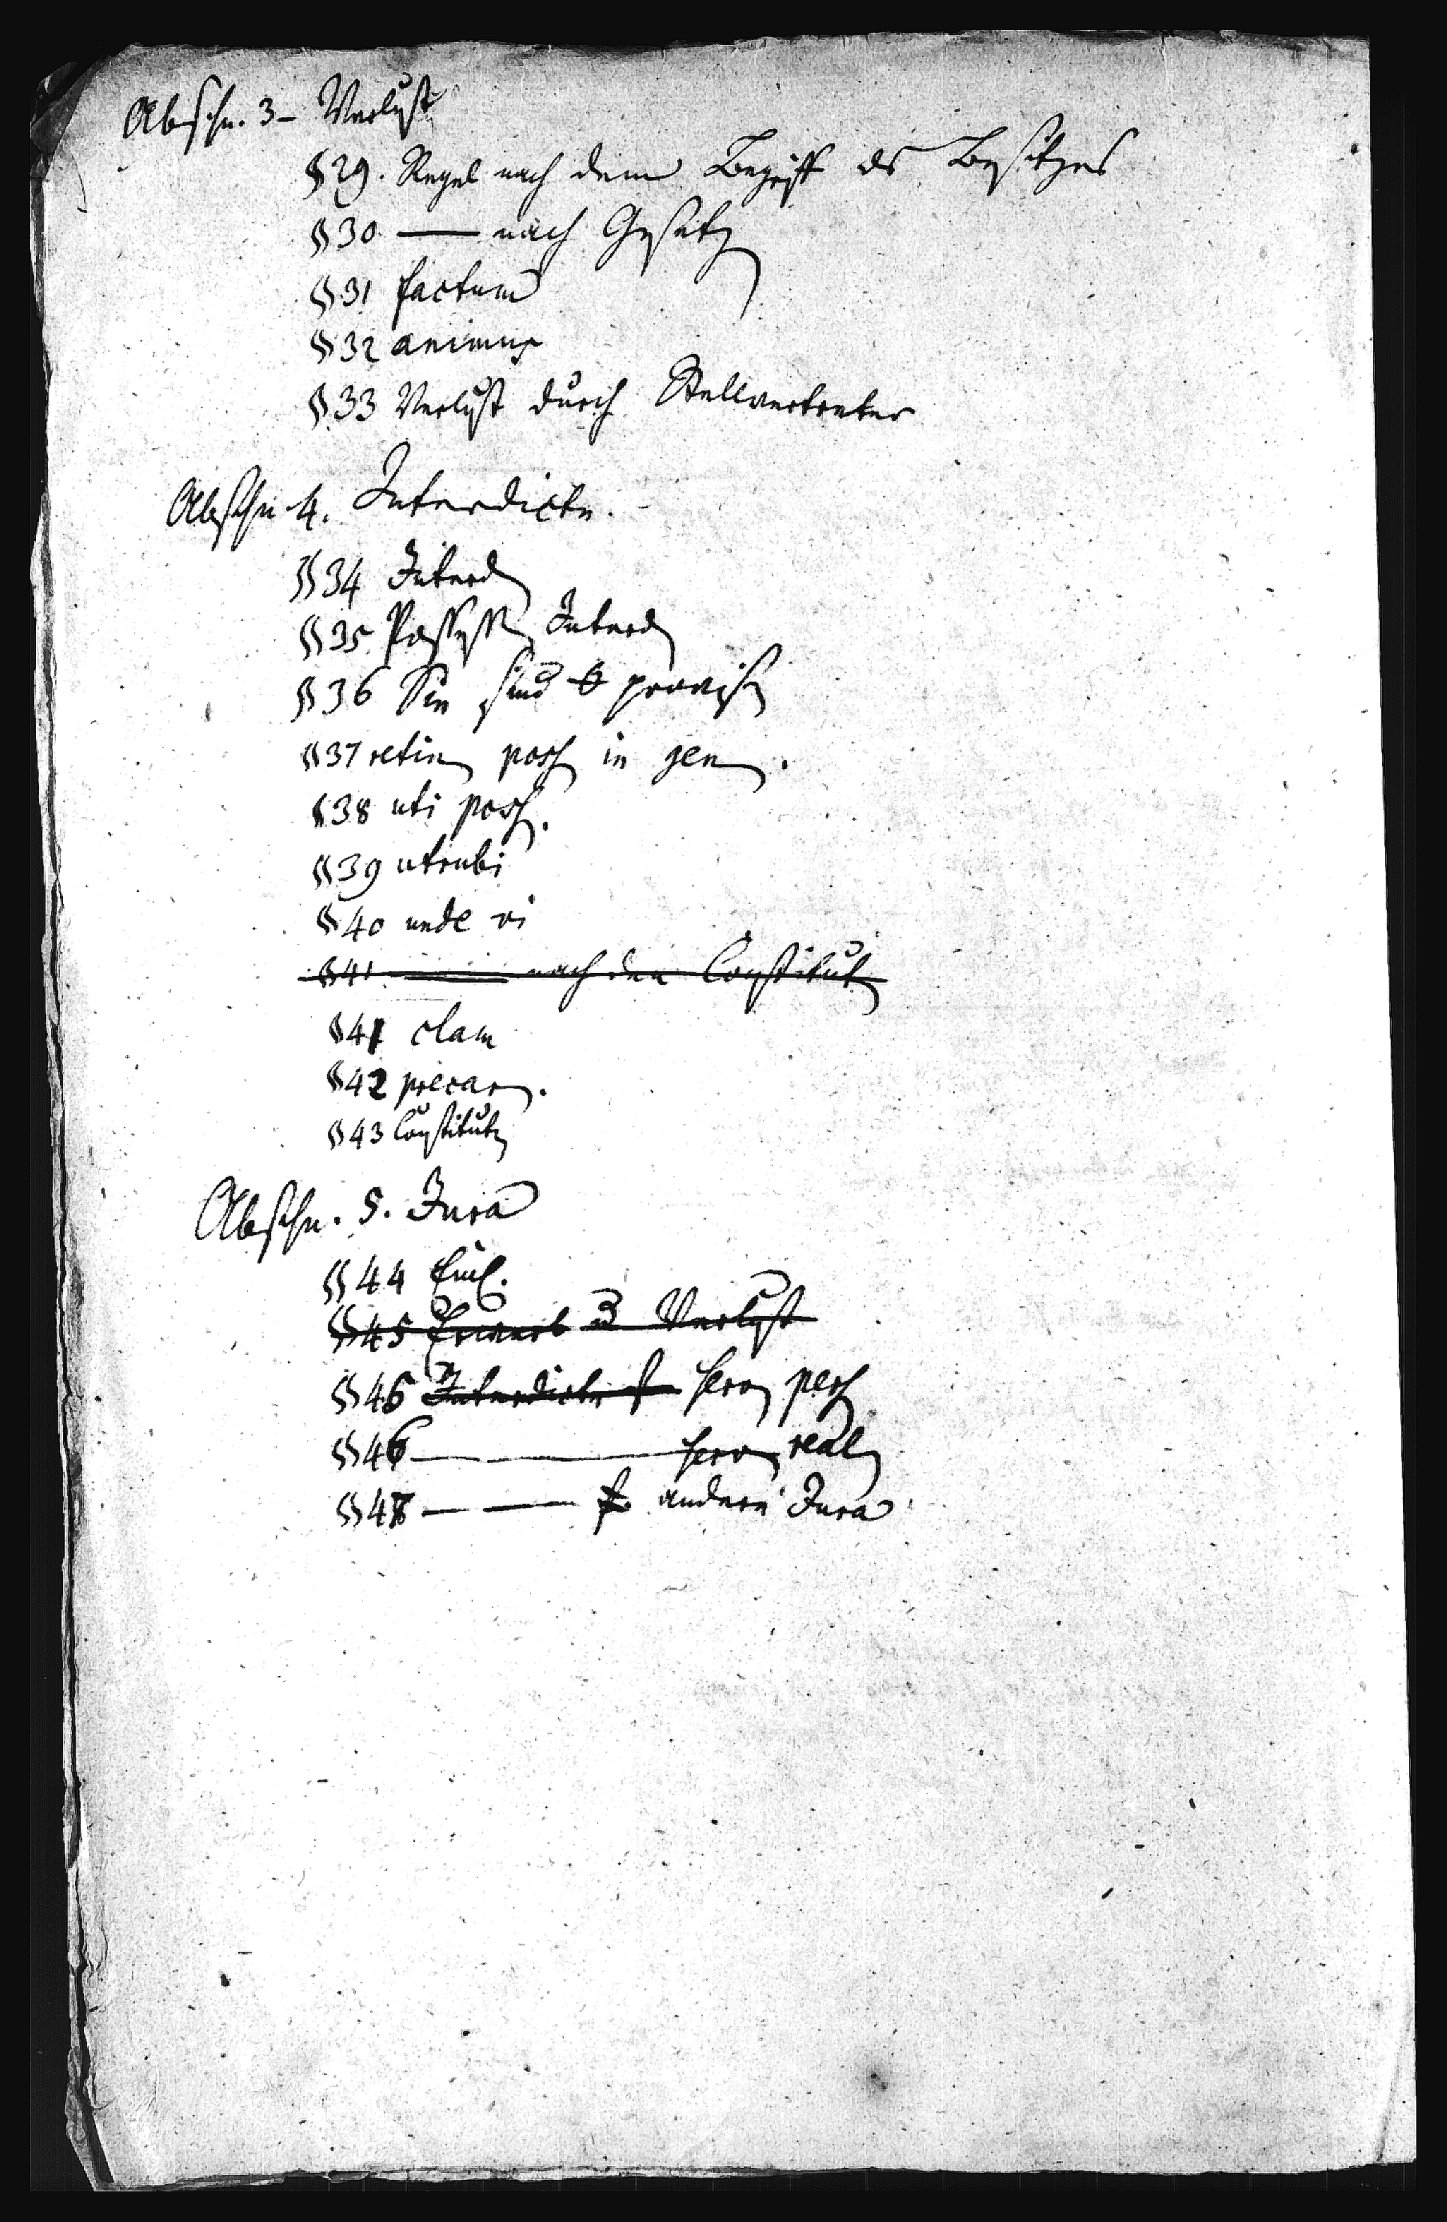 Abschn. 3 – Verlust
§ 29. Regel nach dem Begriff des Besitzes
§ 30 — nach Gesetz
§ 31 factum
§ 32 animus
§ 33 Verlust durch Stellvertreter
Abschn 4. Interdicte.
§ 34 Interd
§ 35 Possess Interd
§ 36 Sie sind provis
§ 37 retin poss in gen.
§ 38 uti poss.
§ 39 utrubi
§ 40 unde vi
§ 41 — nach den Constitut
§ 41 clam
§ 42 precar.
§ 43 Constitut
Abschn. 5. Jura
§ 44 Einl.
§ 45 Erwerb u Verlust
§ 46 Interdicte f serv pers
§ 46 — — serv real
§ 47 — — f andere Jura